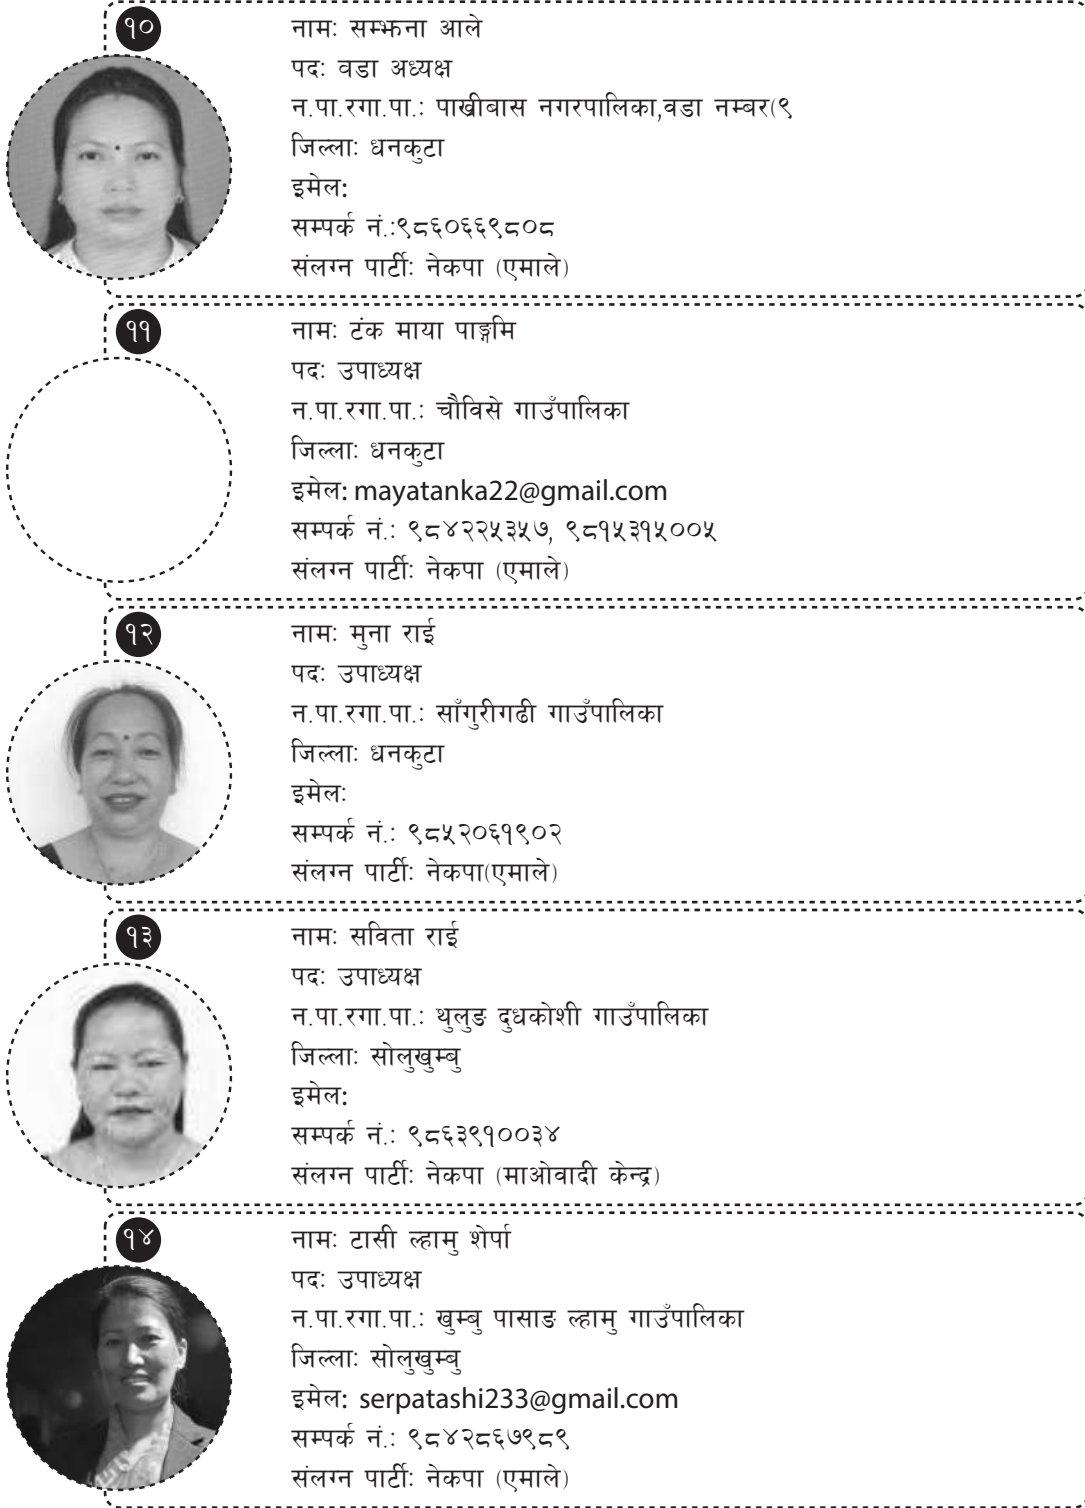 १०
नामः सम्झना आले
पदः वडा अध्यक्ष
न.पा.रगा.पा.: पाख्रीबास नगरपालिका,वडा नम्बर(९
जिल्लाः धनकुटा
इमेल:
सम्पर्क नं.:९८६०६६९८०८
संलग्न पार्टीः नेकपा (एमाले)
११
नामः टंक माया पाङ्गमि
पदः उपाध्यक्ष
न.पा.रगा.पा.: चौविसे गाउँपालिका
जिल्लाः धनकुटा
इमेल: mayatanka22@gmail.com
सम्पर्क नं.: ९८४२२५३५७, ९८१५३१५००५
संलग्न पार्टीः नेकपा (एमाले)
१२
नामः मुना राई
पदः उपाध्यक्ष
न.पा.रगा.पा.: साँगुरीगढी गाउँपालिका
जिल्लाः धनकुटा
इमेलः
सम्पर्क नं.: ९८५२०६१९०२
संलग्न पार्टीः नेकपा(एमाले)
१३
नामः सविता राई
पदः उपाध्यक्ष
न.पा.रगा.पा.: थुलुङ दुधकोशी गाउँपालिका
जिल्लाः सोलुखुम्बु
इमेल:
सम्पर्क नं.: ९८६३९१००३४
संलग्न पार्टीः नेकपा (माओवादी केन्द्र)
१४
नामः टासी ल्हामु शेर्पा
पदः उपाध्यक्ष
न.पा.रगा.पा.: खुम्बु पासाङ ल्हामु गाउँपालिका
जिल्लाः सोलुखुम्बु
इमेल: serpatashi233@gmail.com
सम्पर्क नं.: ९८४२८६७९८९
संलग्न पार्टीः नेकपा (एमाले)